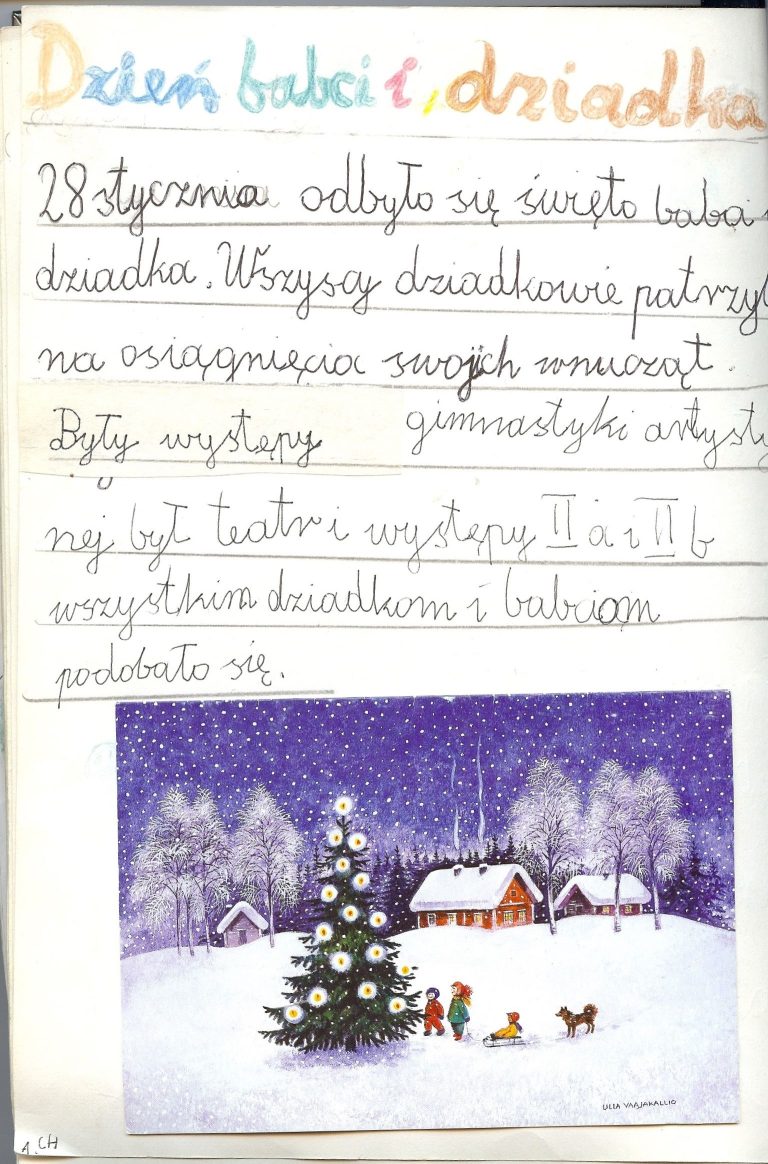 Dzień babci i, dziadka
28 stycznia odbyło się święto babci
dziadka. Wszyscy dziadkowie patrzyl
na osiągnięcia swojich wnucząt.
Były występy gimnastyki artysty
nej był teatr i występy II a i II b
wszystkim dziadkom i babciom
podobało się.
ULLA VAAJAKALLIO
A.CH